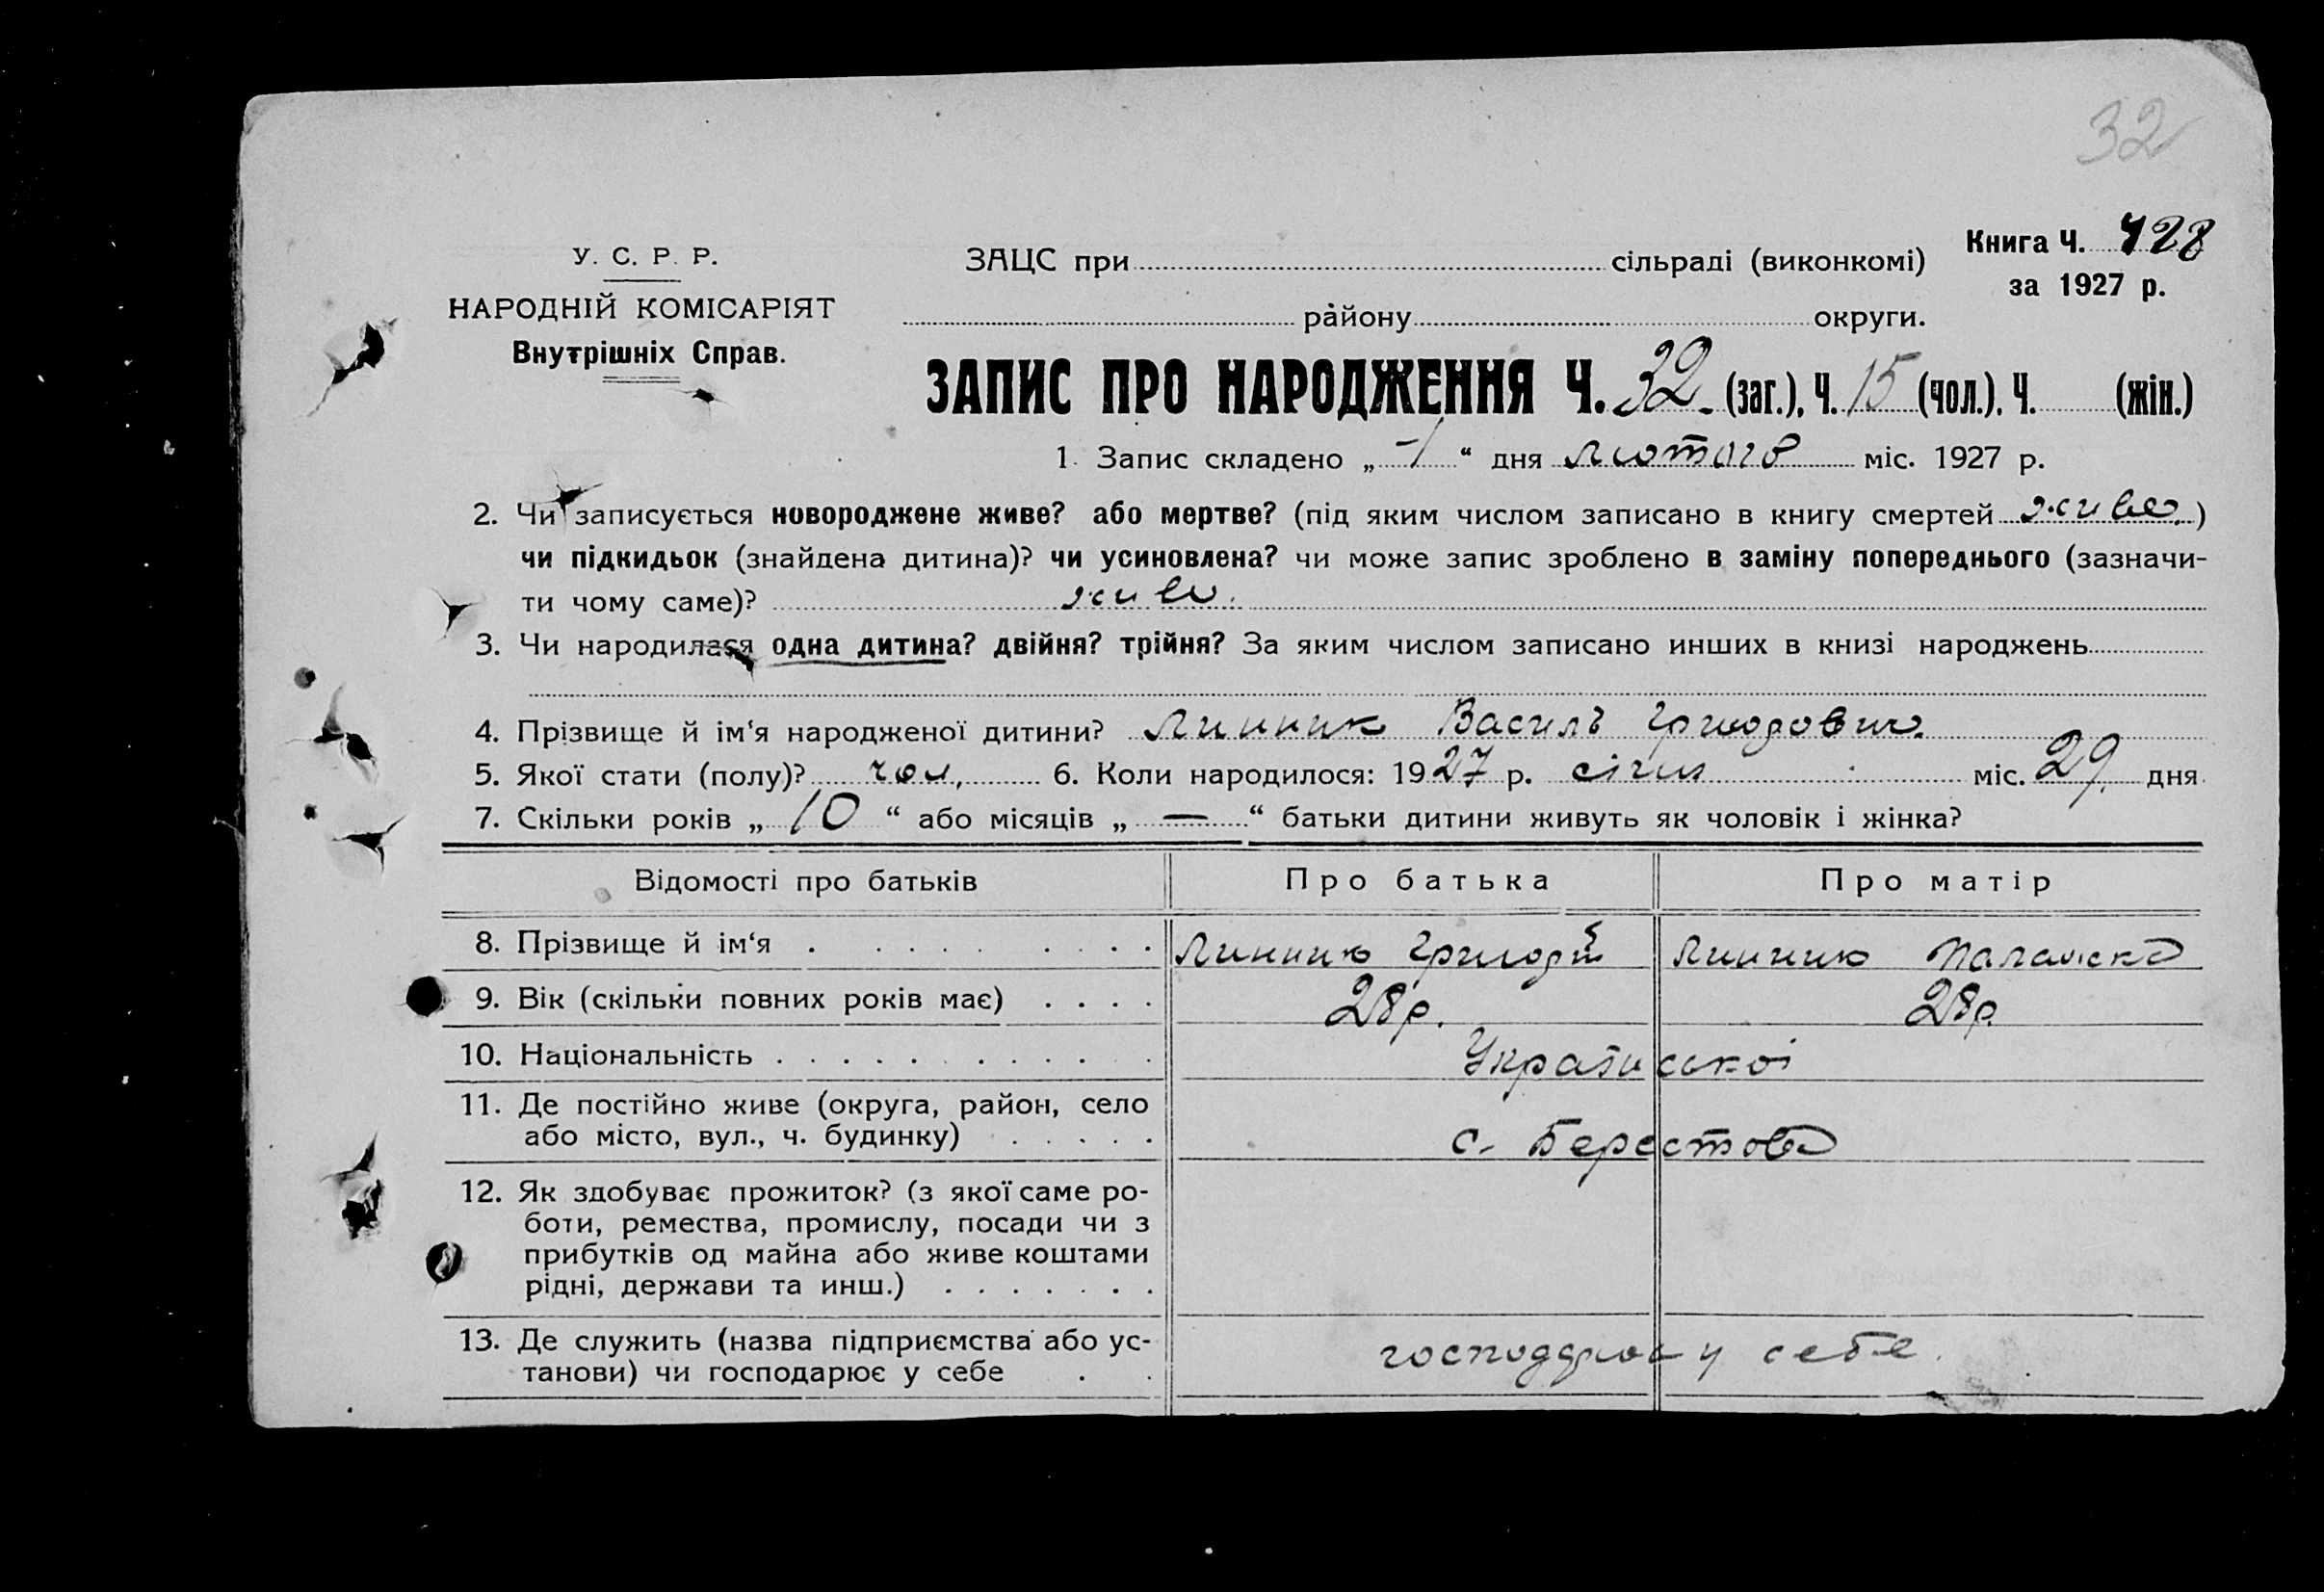 32
У. С. Р. Р.
НАРОДНІЙ КОМІСАРІЯТ
Внутрішніх Справ.
ЗАЦС при сільраді (виконкомі)
району округи.
Книга Ч. 428
за 1927 р.
ЗАПИС ПРО НАРОДЖЕННЯ Ч. 32 (заг.), Ч. 15 (чол.). Ч. (жін.)
1. Запис складено „ 1 “ дня лютого міс. 1927 р.
2. Чи записується новороджене живе? або мертве? (під яким числом записано в книгу смертей живе.)
чи підкидьок (знайдена дитина)? чи усиновлена? чи може запис зроблено в заміну попереднього (зазначи-
ти чому саме)? живе.
3. Чи народилася одна дитина? двійня? трійня? За яким числом записано инших в книзі народжень
4. Прізвище й ім‘я народженої дитини? Линник Василь
5. Якої стати (полу)? чол. 6. Коли народилося: 1927 р. січня міс. 29 дня
7. Скільки років „ 10 “ або місяців „ — “ батьки дитини живуть як чоловік і жінка?
Відомості про батьків Про батька Про матір
8. Прізвище й ім‘я Линник Линник
9. Вік (скільки повних років має) 28р. 28р.
10. Національність Української
11. Де постійно живе (округа, район, село
або місто, вул., ч. будинку) с. Берестова
12. Як здобуває прожиток? (з якої саме ро-
боти, ремества, промислу, посади чи з
прибутків од майна або живе коштами
рідні, держави та инш.)
13. Де служить (назва підприємства або ус-
танови) чи господарює у себе у себе.